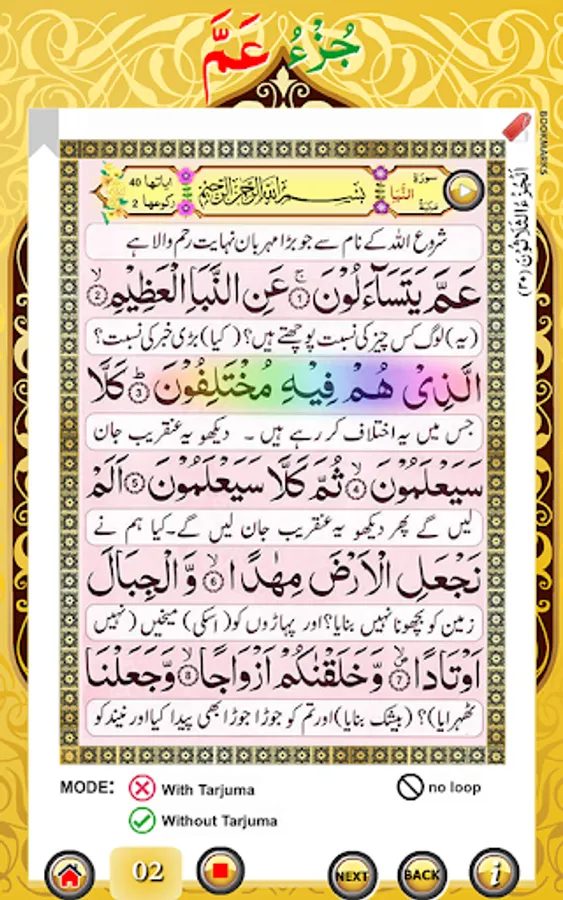 جُزْءُ عَمَّ
BOOKMARKS
اَلْجُزْءُ الثَّلَاثُوْنَ (٣٠)
سورة النَّبَا مكية
بِسْمِ اللهِ الرَّحْمٰنِ الرَّحِيْمِ
اٰیاتها 40
رکوعها 2
شروع اللہ کے نام سے جو بڑا مہربان نہایت رحم والا ہے
عَمَّ يَتَسَآءَلُوْنَ ۚ ① عَنِ النَّبَاِ الْعَظِيْمِ ۙ ②
(یہ) لوگ کس چیز کی نسبت پوچھتے ہیں؟ (کیا) بڑی خبر کی نسبت؟
الَّذِيْ هُمْ فِيْهِ مُخْتَلِفُوْنَ ؕ ③ كَلَّا
جس میں یہ اختلاف کر رہے ہیں ۔ دیکھو یہ عنقریب جان
سَيَعْلَمُوْنَ ۙ ④ ثُمَّ كَلَّا سَيَعْلَمُوْنَ ⑤ اَلَمْ
لیں گے پھر دیکھو یہ عنقریب جان لیں گے۔ کیا ہم نے
نَجْعَلِ الْاَرْضَ مِهٰدًا ۙ ⑥ وَّ الْجِبَالَ
زمین کو بچھونا نہیں بنایا؟ اور پہاڑوں کو (اسکی) میخیں (نہیں
اَوْتَادًا ۪ۙ ⑦ وَّ خَلَقْنٰكُمْ اَزْوَاجًا ۙ ⑧ وَّ جَعَلْنَا
ٹھہرایا)؟ (بیشک بنایا) اور تم کو جوڑا جوڑا بھی پیدا کیا اور نیند کو
MODE: With Tarjuma
no loop
Without Tarjuma
02
NEXT
BACK
i